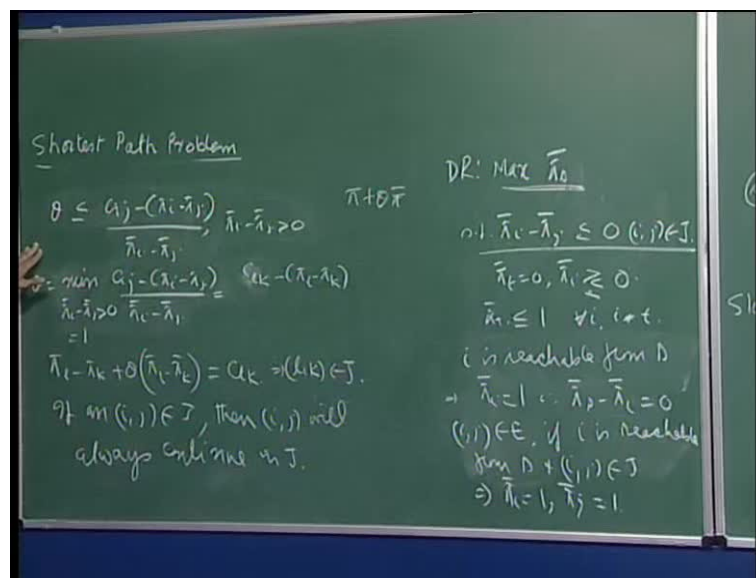 Shortest Path Problem
θ ≤ (c_ij − (π_i − π_j)) / (π̄_i − π̄_j), π̄_i − π̄_j > 0
π + θπ̄
= min (c_ij − (π_i − π_j)) / (π̄_i − π̄_j) = c_lk − (π_l − π_k)
π̄_i − π̄_j > 0
= 1
π_l − π_k + θ(π̄_l − π̄_k) = c_lk ⇒ (l,k) ∈ J.
If an (i,j) ∈ J, then (i,j) will
always continue in J.
DR: Max π̄_s
s.t. π̄_i − π̄_j ≤ 0 (i,j) ∈ J.
π̄_t = 0, π̄_i ≷ 0.
π̄_i ≤ 1 ∀i, i ≠ t.
i is reachable from s
⇒ π̄_i = 1 ∵ π̄_s − π̄_i = 0
(i,j) ∈ E, if i is reachable
from s + (i,j) ∈ J
⇒ π̄_i = 1, π̄_j = 1.